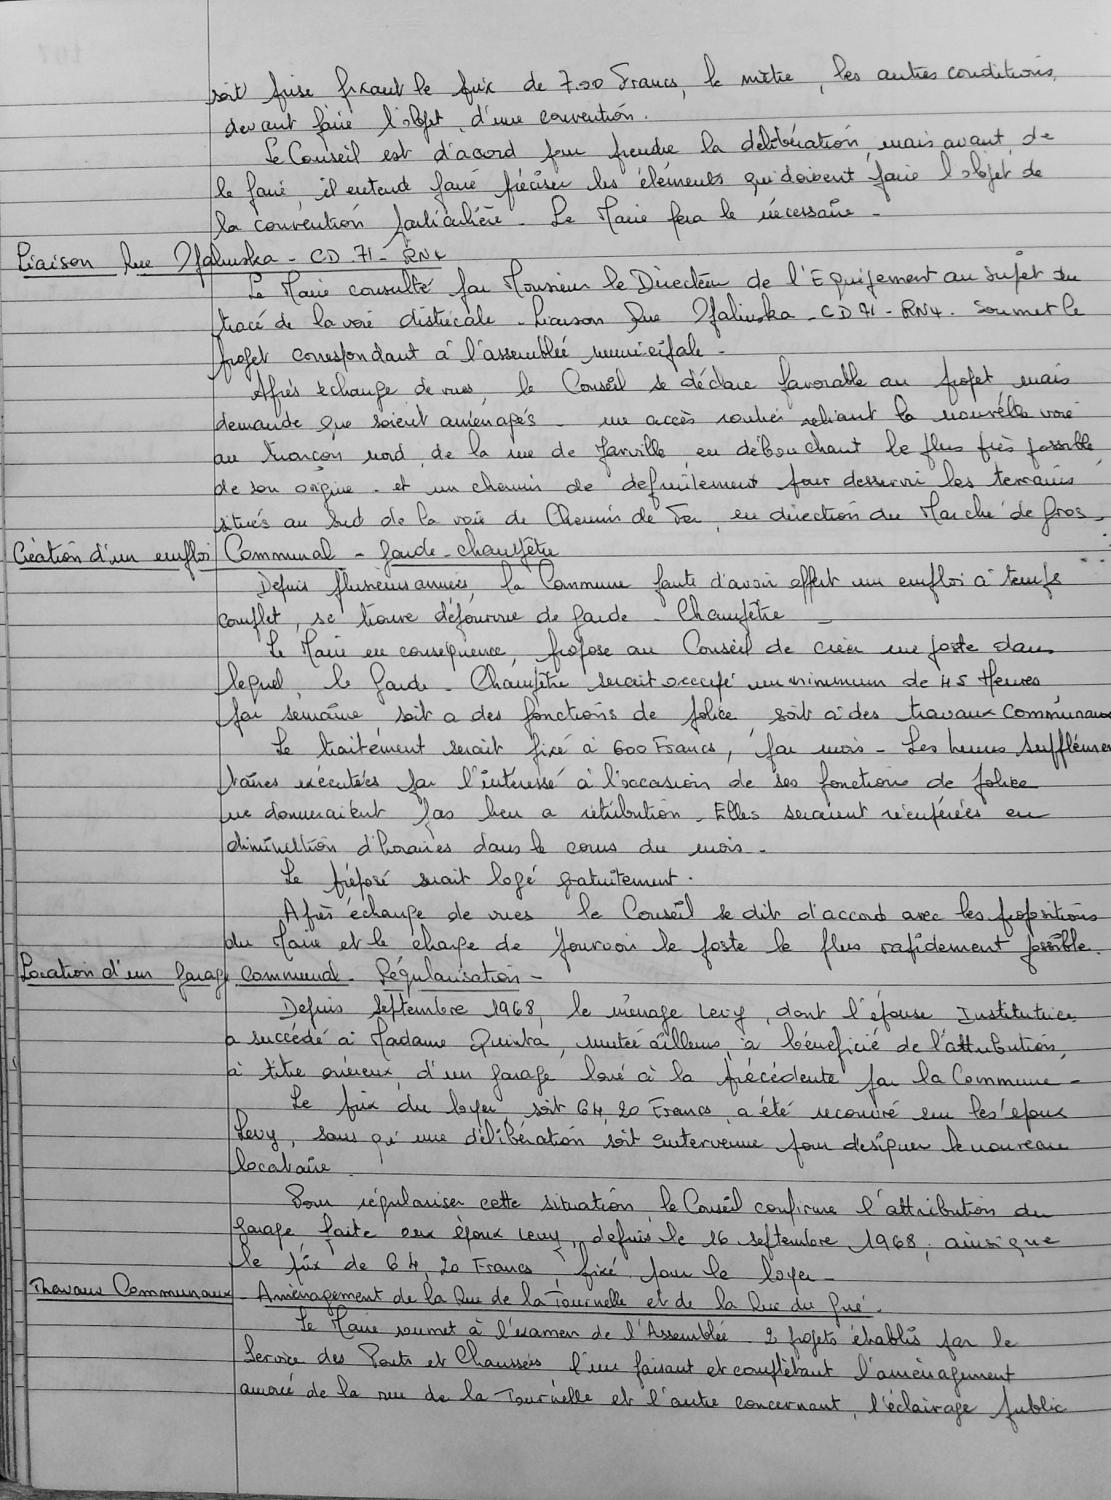 soit prise fixant le prix de 7.00 Francs, le mètre, les autres conditions,
devant faire l'objet, d'une convention.
Le Conseil est d'acord pour prendre la délibération, mais avant, de
le faire, il entend faire préciser les éléments qui doivent faire l'objet de
la convention particulière - Le Maire fera le nécessaire -
Liaison Rue - CD 71 - RN4
Le Maire consulté par Monsieur le Directeur de l'Equipement au sujet du
tracé de la voie districale - Liaison Rue - CD 71 - RN4. Soumet le
projet correspondant à l'assemblée municipale -
Après échange de vues, le Conseil se déclare favorable au projet mais
demande que soient aménagés - un accès routier reliant la nouvelle voie
au tronçon nord, de la rue de Janville, en débouchant le plus près possible
de son origine - et un chemin de défruitement pour desservir les terrains
situés au Sud de la voie de Chemin de Fer, en direction du Marché de Gros -
Création d'un emploi Communal - garde-champêtre
Depuis plusieurs années, la Commune faute d'avoir offert un emploi à temps
complet, se trouve dépourvue de Garde - Champêtre -
Le Maire en conséquence, propose au Conseil de créer un poste dans
lequel, le Garde - Champêtre serait occupé un minimum de 45 Heures
par semaine soit a des fonctions de police soit à des travaux Communaux
Le traitement serait fixé à 600 Francs, par mois - Les heures supplémen
taires exécutées par l'intéressé à l'occasion de ses fonctions de police
ne donneraient pas lieu a rétribution - Elles seraient récupérées en
diminution d'horaires dans le cours du mois -
Le préposé serait logé gratuitement.
Après échange de vues le Conseil se dit d'accord avec les propositions
du Maire et le charge de pourvoir le poste le plus rapidement possible.
Location d'un Garage Communal - Régularisation -
Depuis Septembre 1968, le ménage Levy, dont l'épouse Institutrice
a succédé à Madame Quinta, mutée ailleurs, a bénéficié de l'attribution,
à titre onéreux, d'un garage loué à la précédente par la Commune -
Le prix du loyer, soit 64,20 Francs, a été recouvré sur les époux
Levy, sans qu'une délibération soit intervenue pour désigner le nouveau
locataire.
Pour régulariser cette situation le Conseil confirme l'attribution du
garage faite aux époux Levy, depuis le 16 septembre 1968, ainsi que
le prix de 64,20 Francs fixé pour le loyer -
Travaux Communaux - Aménagement de la Rue de la Tournelle et de la Rue du Gué.
Le Maire soumet à l'examen de l'Assemblée 2 projets établis par le
Service des Ponts et Chaussées l'un faisant et complétant l'aménagement
amorcé de la rue de la Tournelle et l'autre concernant, l'éclairage public